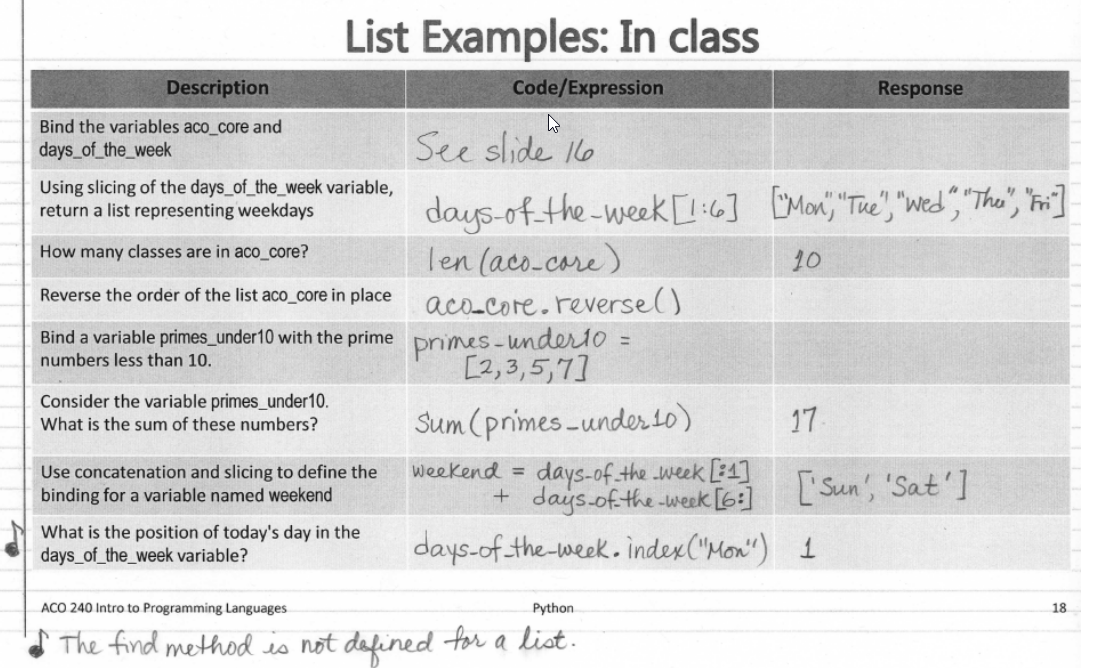 List Examples: In class
Description Code/Expression Response
Bind the variables aco_core and
days_of_the_week
See slide 16
Using slicing of the days_of_the_week variable,
return a list representing weekdays
days_of_the_week[1:6]
["Mon", "Tue", "Wed", "Thu", "Fri"]
How many classes are in aco_core?
len(aco_core)
10
Reverse the order of the list aco_core in place
aco_core.reverse()
Bind a variable primes_under10 with the prime
numbers less than 10.
primes_under10 =
[2,3,5,7]
Consider the variable primes_under10.
What is the sum of these numbers?
Sum(primes_under10)
17
Use concatenation and slicing to define the
binding for a variable named weekend
weekend = days_of_the_week[:1]
+ days_of_the_week[6:]
['Sun', 'Sat']
What is the position of today's day in the
days_of_the_week variable?
days_of_the_week.index("Mon")
1
ACO 240 Intro to Programming Languages Python 18
The find method is not defined for a list.